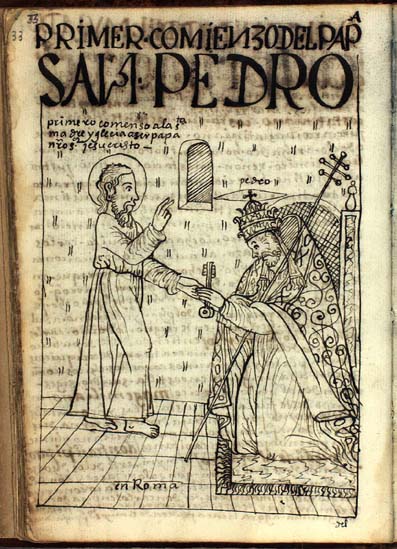 33
33
PRIMER·COMIENZO DEL PAPA
SAN· PEDRO
primero comenso a la sta
madre yglecia a ser papa
nro s. jesucristo –
pedro
en Roma
del